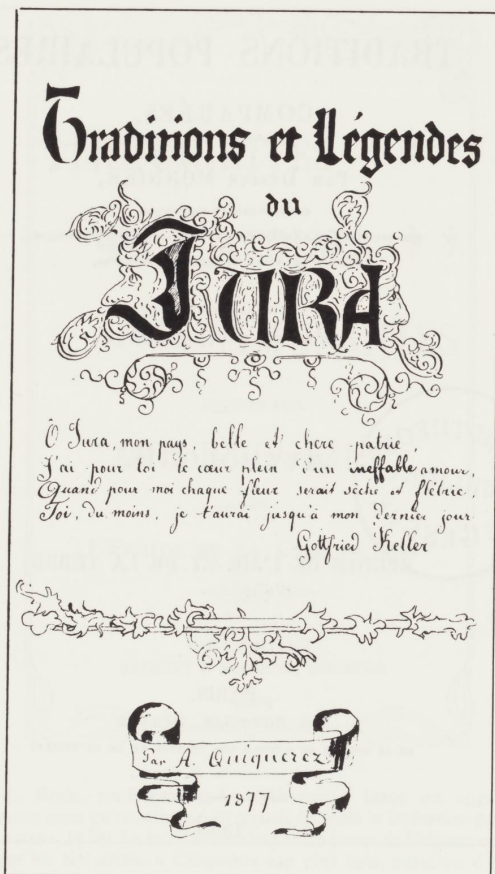 Traditions et Légendes
du
JURA
Ô Jura, mon pays, belle et chere patrie
J'ai pour toi le cœur plein d'un ineffable amour,
Quand pour moi chaque fleur serait sèche et flétrie,
Toi, du moins, je t'aurai jusqu'à mon dernier jour
Gottfried Keller
Par A. Quiquerez
1877